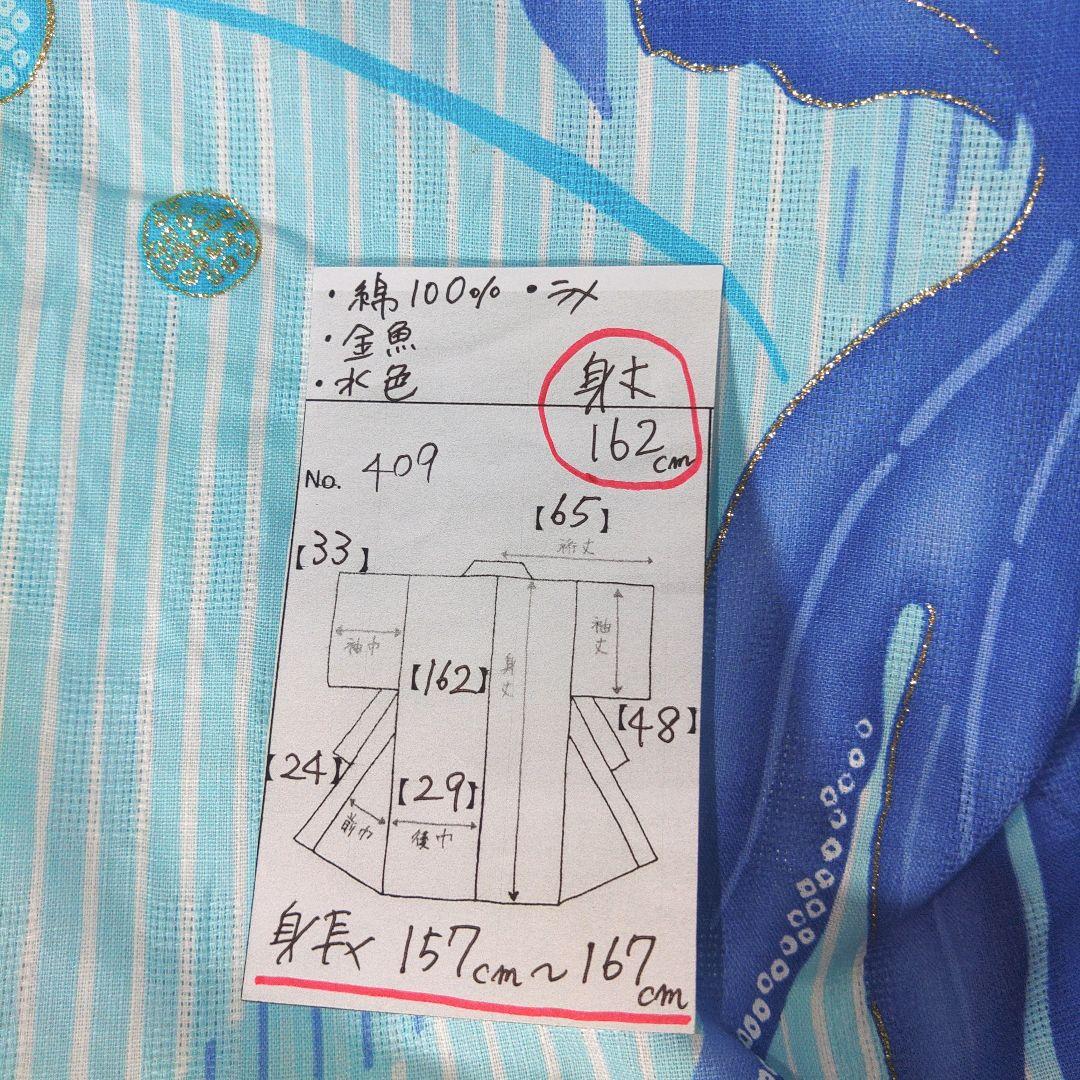 ・綿100%・ラメ
・金魚
・水色
身丈
162cm
No. 409
【65】
裄丈
【33】
袖巾
袖丈
【162】
身丈
【48】
【24】
【29】
前巾
後巾
身長 157cm～167cm